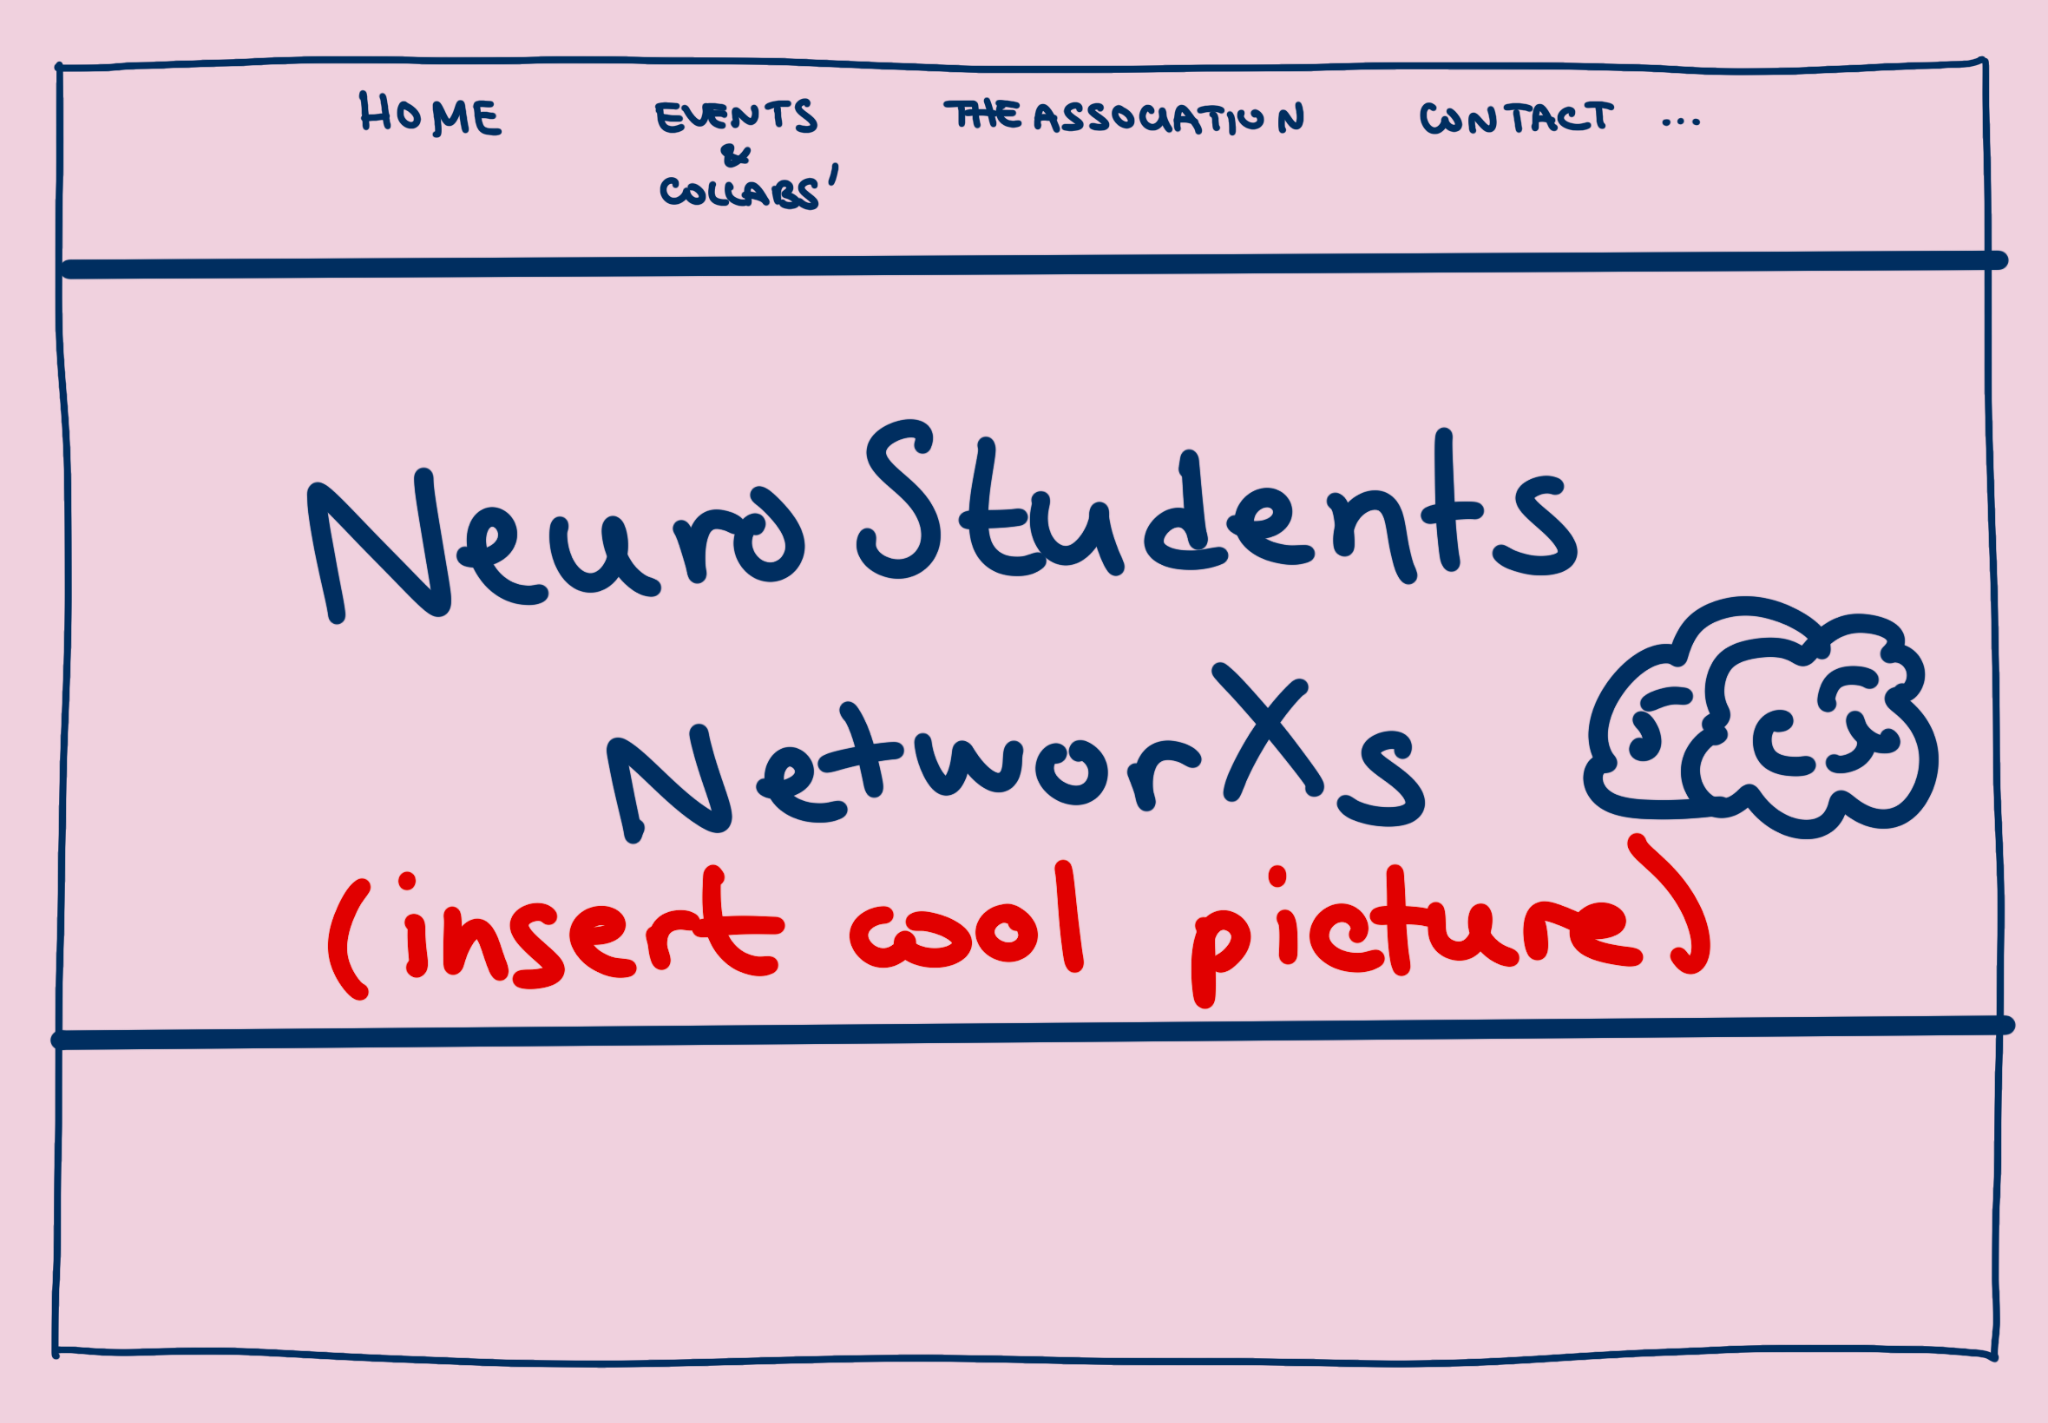 HOME EVENTS & COLLABS' THE ASSOCIATION CONTACT ...
Neuro Students
NetworXs
(insert cool picture)